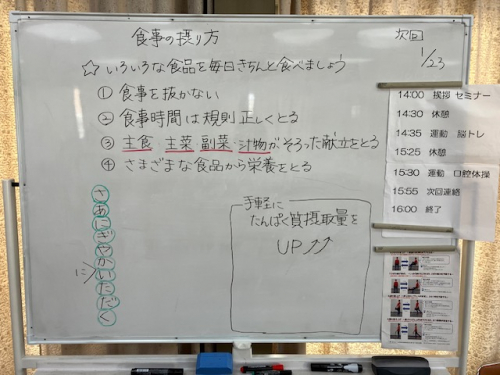 食事の摂り方
次回
1/23
☆いろいろな食品を毎日きちんと食べましょう
①食事を抜かない
②食事時間は規則正しくとる
③主食 主菜 副菜 汁物がそろった献立をとる
④さまざまな食品から栄養をとる
さあにぎやかいただく
に
手軽に
たんぱく質摂取量を
UP↗↗
14:00 挨拶 セミナー
14:30 休憩
14:35 運動 脳トレ
15:25 休憩
15:30 運動 口腔体操
15:55 次回連絡
16:00 終了